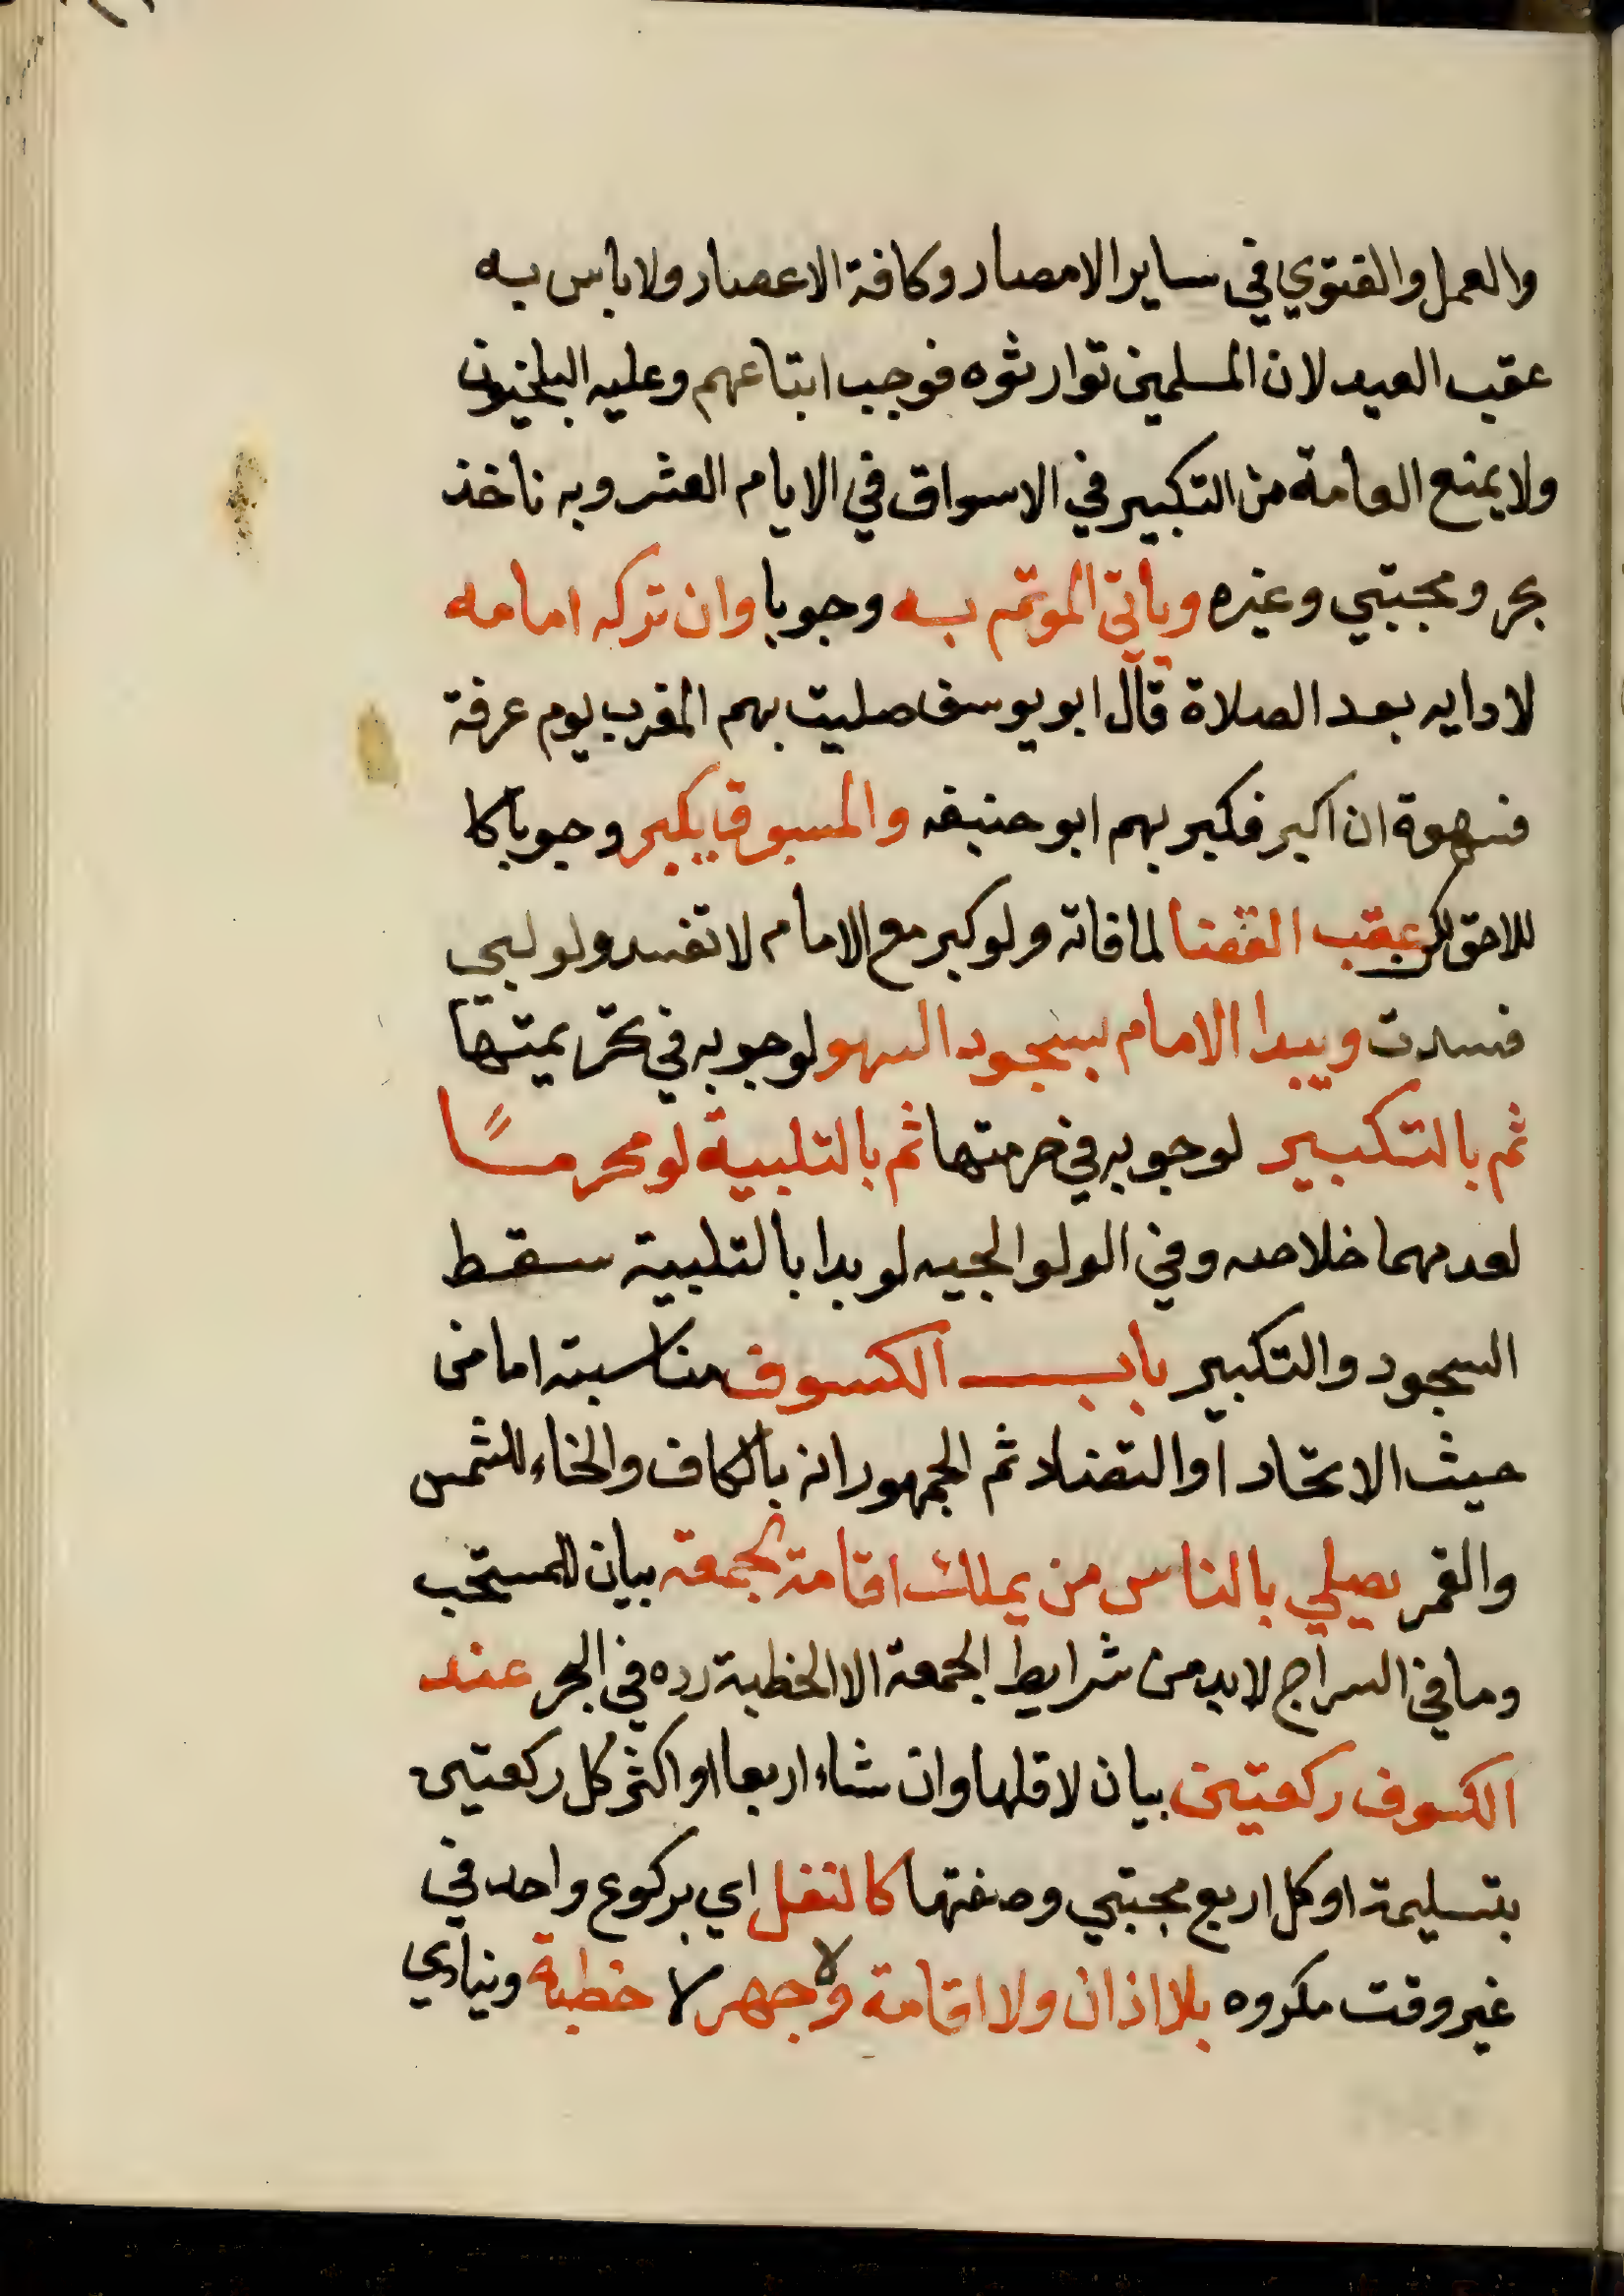 والعمل والفتوي في ساير الامصار وكافة الاعصار ولا باس به
عقب العيد لان المسلمين توارثوه فوجب ابتاعهم وعليه البلخيون
ولا يمنع العامة من التكبير في الاسواق في الايام العشر وبه ناخذ
بحر ومجتبي وغيره وياتي الموتم به وجوبا وان تركه امامه
لادايه بعد الصلاة قال ابو يوسف صليت بهم المغرب يوم عرفة
فسهوة ان اكبر فكبر بهم ابو حنيفه والمسبوق يكبر وجوبا كا
للاحق لكن عقب القضا لما فاته ولو كبر مع الامام لا تفسد ولو لبي
فسدت ويبدا الامام بسجود السهو لوجوبه في تحريمتها
ثم بالتكبير لوجوبه في حرمتها ثم بالتلبية لو محرمًا
لعدمهما خلاصه وفي الولوالجيه لو بدا بالتلبية سقط
السجود والتكبير باب الكسوف مناسبته اما من
حيث الاتحاد او التضاد ثم الجمهور انه بالكاف والخاء للشمس
والقمر يصلي بالناس من يملك اقامة الجمعة بيان للمستحب
وما في السراج لا بد من شرايط الجمعة الا الخطبة رده في البحر عند
الكسوف ركعتين بيان لاقلها وان شاء اربعا او اكثر كل ركعتين
بتسليمة او كل اربع مجتبي وصفتها كالنفل اي بركوع واحد في
غير وقت مكروه بلا اذان ولا اقامة ولا جهر لا خطبة وينادي